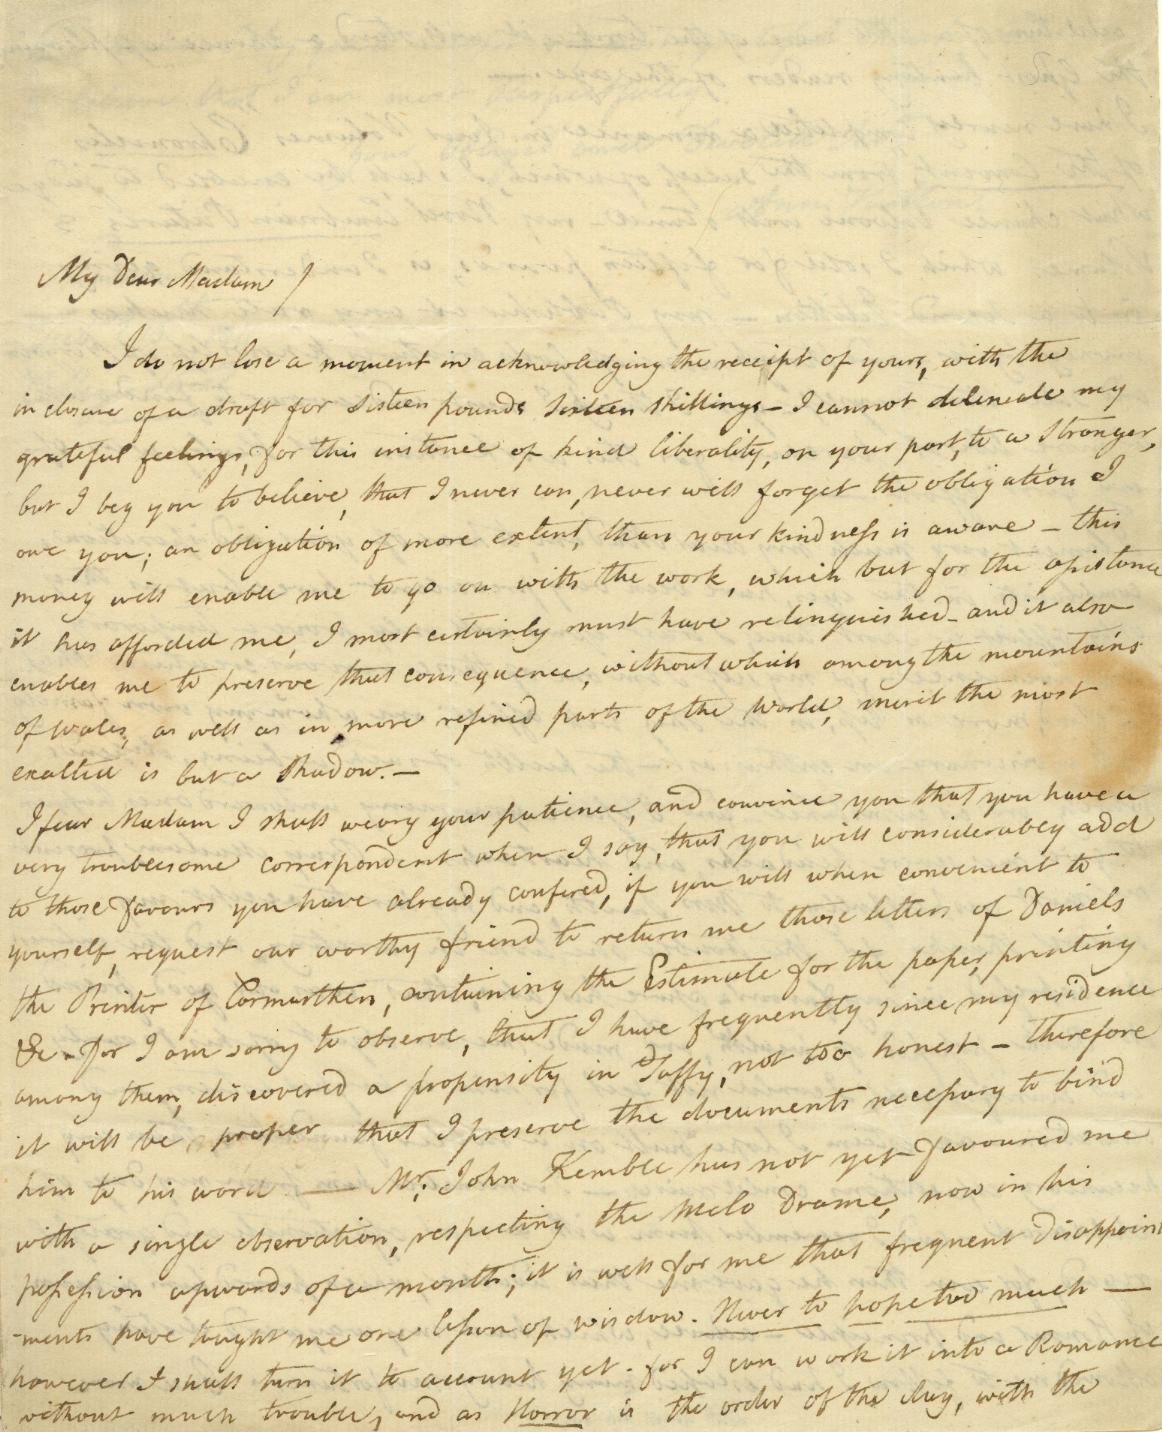 My Dear Madam /
I do not lose a moment in acknowledging the receipt of yours, with the
inclosure of a draft for Sixteen pounds Sixteen Shillings – I cannot deleneate my
grateful feelings, for this instance of kind liberality, on your part, to a Stranger,
but I beg you to believe, that I never can, never will forget the obligation I
owe you; an obligation of more extent, than your kindness is aware – this
money will enable me to go on with the work, which but for the assistance
it has afforded me, I most certainly must have relinquished – and it also
enables me to preserve that consequence, without which among the mountains
of Wales, as well as in more refined parts of the World, merit the most
exalted is but a Shadow. –
I fear Madam I shall weary your patience, and convince you that you have a
very troublesome correspondent when I say, that you will considerabey add
to those favours you have already confered, if you will when convenient to
yourself, request our worthy friend to return me those letters of Daniels
the Printer of Carmarthen, containing the Estimate for the paper, printing
&c – for I am sorry to observe, that I have frequently since my residence
among them, discovered a propensity in Taffy, not too honest – therefore
it will be proper that I preserve the documents necessary to bind
him to his word — Mr. John Kemble has not yet favoured me
with a single observation, respecting the Melo Drame, now in his
possession upwards of a month; it is well for me that frequent disappoint
-ments have taught me one lesson of wisdom. Never to hope too much —
however I shall turn it to account yet. for I can work it into a Romance
without much trouble, and as Horror is the order of the day, with the